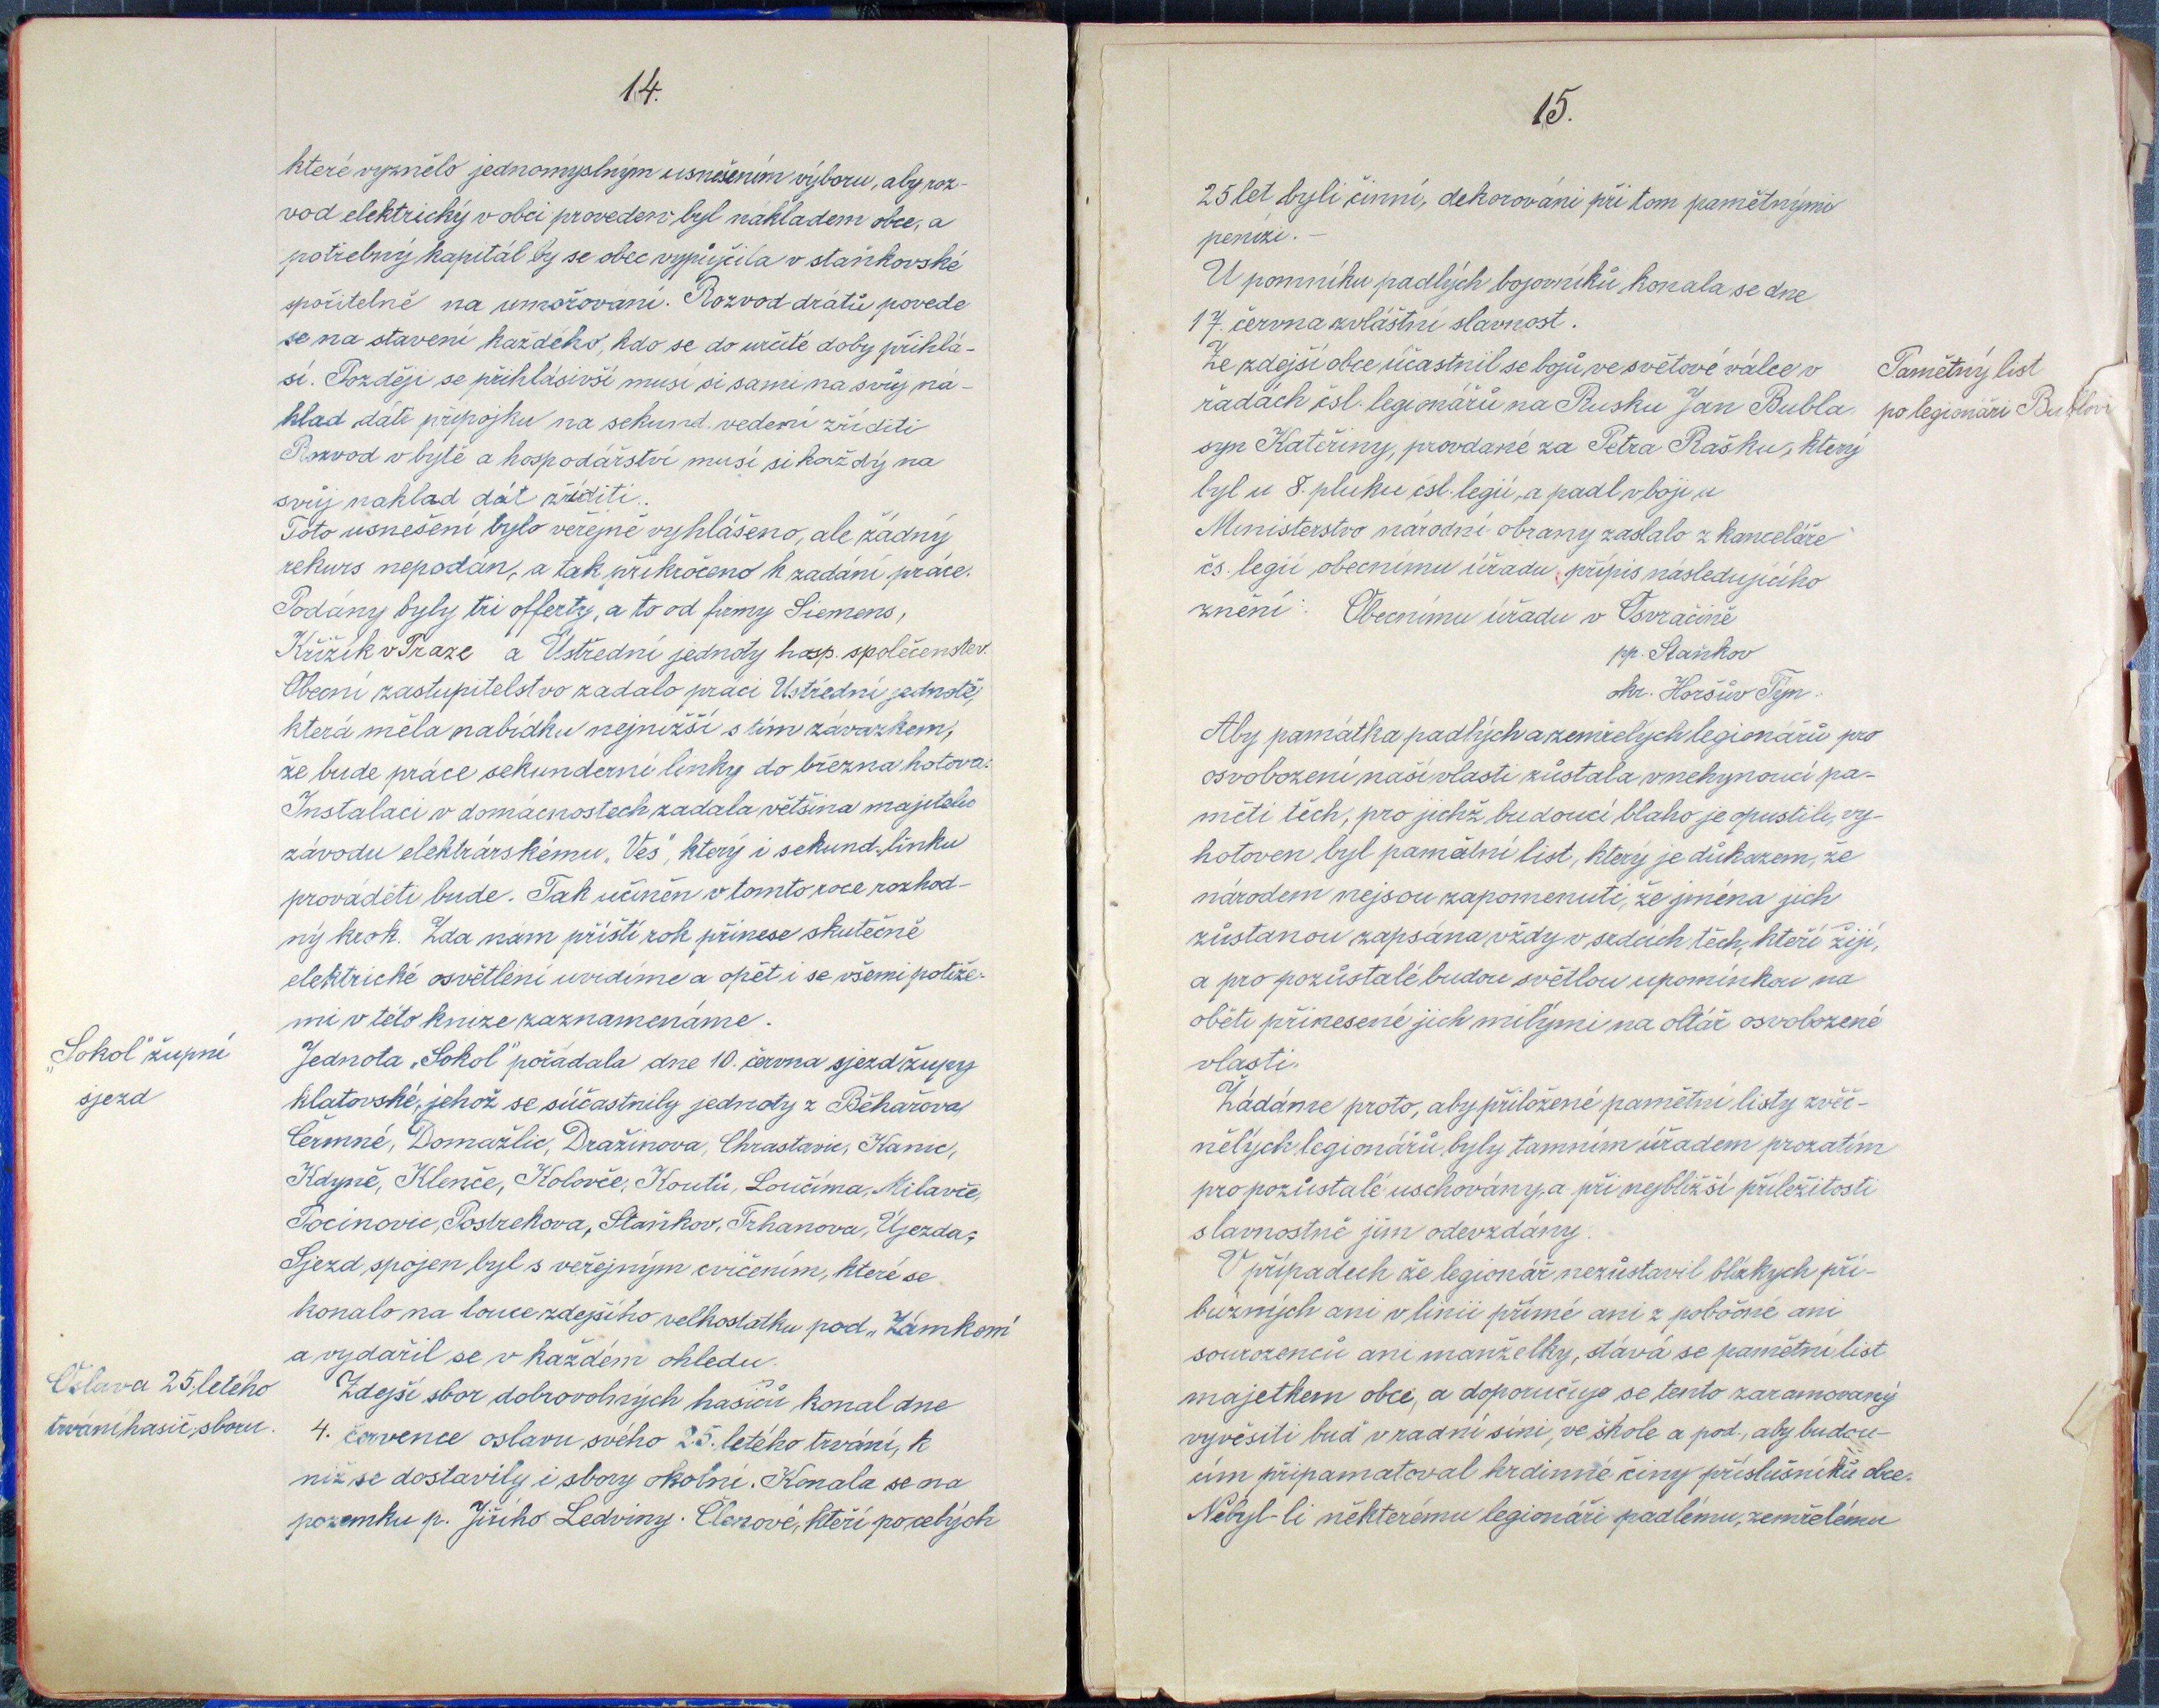 14.
které vyznělo jednomyslným usnešením výboru, aby roz-
vod elektrický v obci proveden byl nákladem obce, a
potřebný kapitál by se obec vypůjčila v staňkovské
spořitelně na umořování. Rozvod drátů povede
se na stavení každého, kdo se do určité doby přihlá-
sí. Později se přihlásivší musí si sami na svůj ná-
klad dáti přípojku na sekund. vedení zříditi
Rozvod v bytě a hospodářství musí si každý na
svůj náklad dát zříditi.
Toto usnešení bylo veřejně vyhlášeno, ale žádný
rekurs nepodán, a tak přikročeno k zadání práce.
Podány byly tři offerty, a to od firmy Siemens,
Křižík v Praze a Ústřední jednoty hosp. společenstev.
Obecní zastupitelstvo zadalo práci Ústřední jednotě,
která měla nabídku nejnižší s tím závazkem,
že bude práce sekunderní linky do března hotova.
Instalaci v domácnostech zadala většina majitelů
závodu elektrárskému „Ves", který i sekund. linku
prováděti bude. Tak učiněn v tomto roce rozhod-
ný krok. Zda nám příští rok přinese skutečně
elektrické osvětlení uvidíme a opět i se všemi potíže-
mi v této knize zaznamenáme.
„Sokol" župní
sjezd
Jednota „Sokol" pořádala dne 10. června sjezd župy
klatovské, jehož se súčastnily jednoty z Běhařova,
Čermné, Domažlic, Dražinova, Chrastavic, Kanic,
Kdyně, Klenče, Kolovče, Koutů, Loučíma, Milavče,
Pocinovic, Postřekova, Staňkov, Trhanova, Újezda,
Sjezd spojen byl s veřejným cvičením, které se
konalo na louce zdejšího velkostatku pod „Zámkem
a vydařil se v každém ohledu.
Oslava 25 letého
trvání hasič. sboru.
Zdejší sbor dobrovolných hasičů konal dne
4. července oslavu svého 25. letého trvání, k
níž se dostavily i sbory okolní. Konala se na
pozemku p. Jiřího Ledviny. Členové, kteří po celých
15.
25 let byli činní, dekorováni při tom pamětnými
penízi. –
U pomníku padlých bojovníků konala se dne
17. června zvláštní slavnost.
Pamětný list
po legionáři Bublovi
Ze zdejší obce účastnil se bojů ve světové válce v
řadách čsl. legionářů na Rusku Jan Bubla
syn Kateřiny, provdané za Petra Rašku, který
byl u 8. pluku čsl. legií, a padl v boji u
Ministerstvo národní obrany zaslalo z kanceláře
čs. legií obecnímu úřadu přípis následujícího
znění: Obecnímu úřadu v Osvračíně
pp. Staňkov
okr. Horšův Týn.
Aby památka padlých a zemřelých legionářů pro
osvobození naší vlasti zůstala v nehynoucí pa-
měti těch, pro jichž budoucí blaho je opustili, vy-
hotoven byl památní list, který je důkazem, že
národem nejsou zapomenuti, že jména jich
zůstanou zapsána vždy v srdcích těch, kteří žijí,
a pro pozůstalé budou světlou upomínkou na
oběti přinesené jich milými na oltář osvobozené
vlasti.
Žádáme proto, aby přiložené pamětní listy zvěč-
nělých legionářů byly tamním úřadem prozatím
pro pozůstalé uschovány a při nejbližší příležitosti
slavnostně jim odevzdány.
V případech že legionář nezůstavil blízkych pří-
buzných ani v linii přímé ani z pobočné ani
sourozenců ani manželky, stává se pamětní list
majetkem obce, a doporučuje se tento zarámovaný
vyvěsiti buď v radní síni, ve škole a pod., aby budou-
cím připamatoval hrdinné činy příslušníků obce.
Nebyl-li některému legionáři padlému, zemřelému